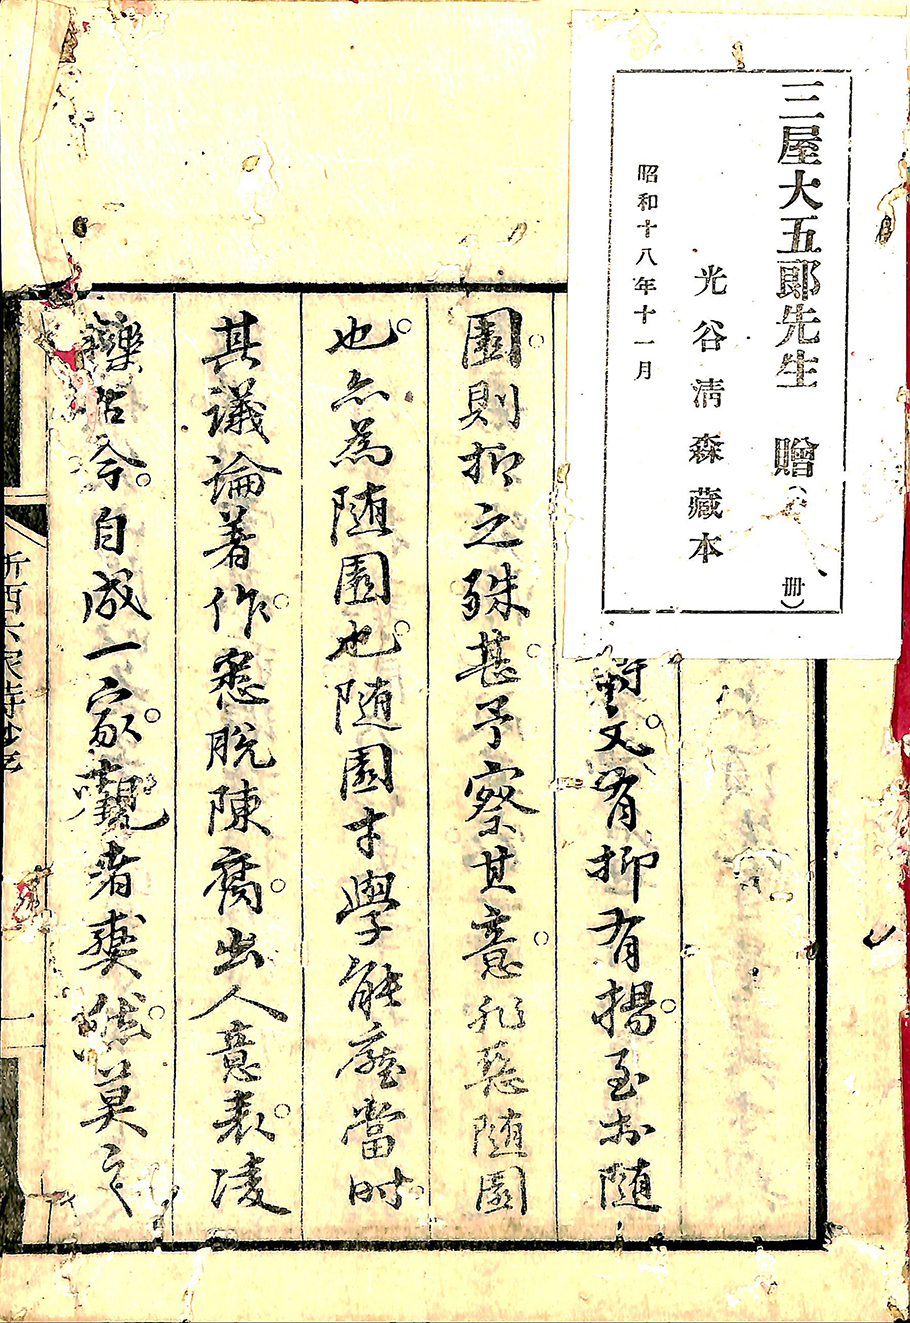 三屋大五郎先生 贈( 册)
光谷清森藏本
昭和十八年十一月
詩文有抑有揚至於随
園則抑之殊甚予察其意非惡随園
也亦為随園也随園才學能壓當時
其議論著作悉脱陳腐出人意表凌
轢古今自成一家觀者爽然莫之
浙西六家詩鈔
一